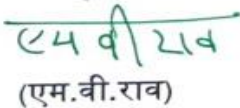 एम वी राव
(एम.वी.राव)